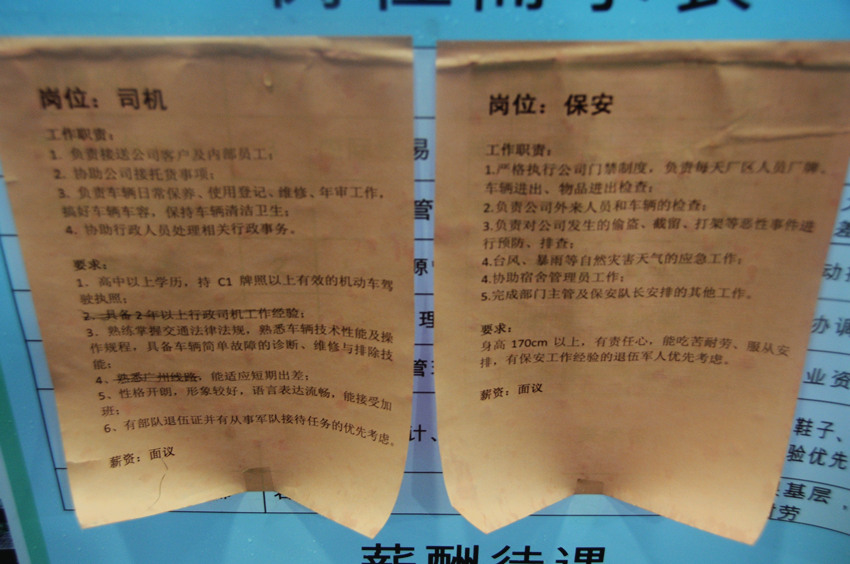 岗位：司机
工作职责：
1. 负责接送公司客户及内部员工；
2. 协助公司接托货事项；
3. 负责车辆日常保养、使用登记、维修、年审工作，
搞好车辆车容，保持车辆清洁卫生；
4. 协助行政人员处理相关行政事务。
要求：
1、高中以上学历，持 C1 牌照以上有效的机动车驾
驶执照；
2、具备 2 年以上行政司机工作经验；
3、熟练掌握交通法律法规，熟悉车辆技术性能及操
作规程，具备车辆简单故障的诊断、维修与排除技
能；
4、熟悉广州线路，能适应短期出差；
5、性格开朗，形象较好，语言表达流畅，能接受加
班；
6、有部队退伍证并有从事军队接待任务的优先考虑。
薪资：面议
岗位：保安
工作职责：
1.严格执行公司门禁制度，负责每天厂区人员厂牌、
车辆进出、物品进出检查；
2.负责公司外来人员和车辆的检查；
3.负责对公司发生的偷盗、截留、打架等恶性事件进
行预防、排查；
4.台风、暴雨等自然灾害天气的应急工作；
4.协助宿舍管理员工作；
5.完成部门主管及保安队长安排的其他工作。
要求：
身高 170cm 以上，有责任心，能吃苦耐劳、服从安
排，有保安工作经验的退伍军人优先考虑。
薪资：面议
易
管
源
理
管
计、
差
动
协调
业资
鞋子、
验优先
基层，
劳
薪酬待遇